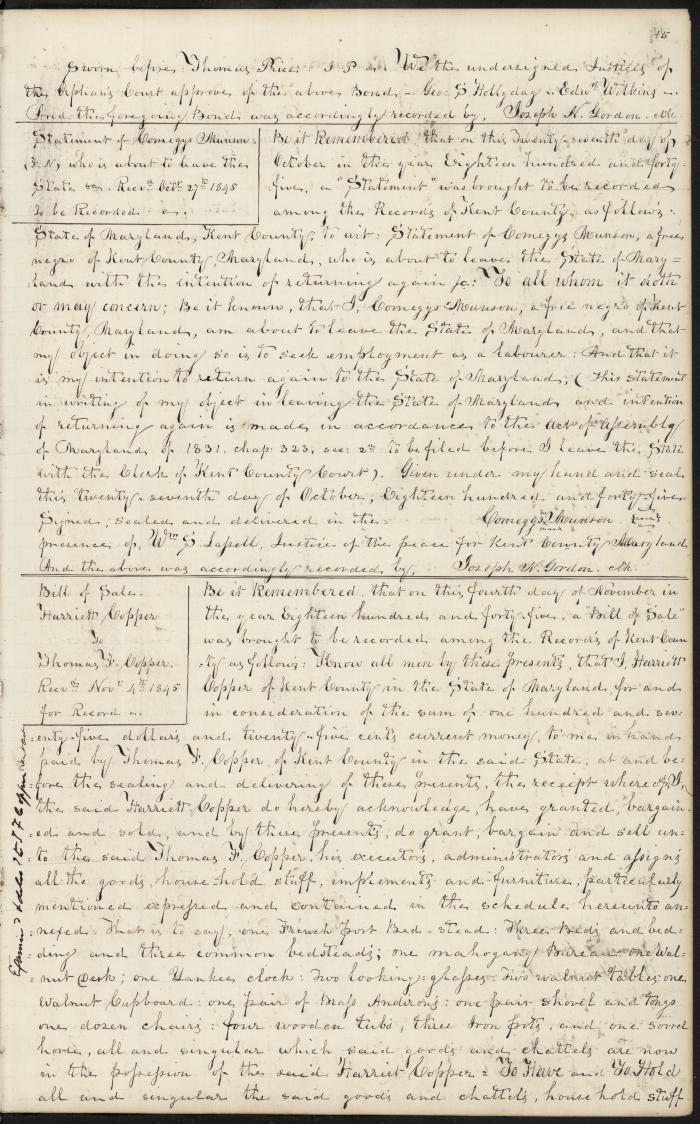 45
Sworn before Thomas Rice J P. We the undersigned Justices of
the Orphan's Court approve of the above Bond - Geo: S Hollyday - Edwd Wilkins -
And the foregoing Bond was accordingly recorded by, Joseph N. Gordon. clk.
Statement of Comegys Munson
(F. N) who is about to leave the
State &c. Recvd Octr 27th 1845
to be Recorded
Be it Remembered, that on this Twenty-seventh day of
October in the year Eighteen hundred and forty-
five, a "Statement" was brought to be recorded
among the Records of Kent County, as follows:
State of Maryland, Kent County, to wit: Statement of Comegys Munson, a free
negro of Kent County, Maryland, who is about to leave the State of Mary=
land with the intention of returning again &c: To all whom it doth
or may concern; Be it known, that I, Comegys Munson, a free negro of Kent
County, Maryland, am about to leave the State of Maryland, and that
my object in doing so is to seek employment as a labourer: And that it
is my intention to return again to the State of Maryland; (This statement
in writing of my object in leaving the State of Maryland and intention
of returning again is made in accordance to the act of assembly
of Maryland of 1831. chap: 323, sec: 2d to be filed before I leave the State
with the Clerk of Kent County Court). Given under my hand and seal
this twenty seventh day of October, Eighteen hundred and forty-five
Signed, sealed and delivered in the Comegys Munson
mark
presence of, Wm S. Lassell, Justice of the peace for Kent County Maryland
And the above was accordingly recorded by, Joseph N. Gordon. clk.
Bill of Sale.
Harriett Copper
To
Thomas F. Copper.
Recvd Novr 4th 1845
for Record
Be it Remembered, that on this fourth day of November in
the year Eighteen hundred and forty-five, a "Bill of Sale"
was brought to be recorded among the Records of Kent Coun
=ty as follows: Know all men by these presents, that I, Harriett
Copper of Kent County in the State of Maryland, for and
in consideration of the sum of one hundred and sev=
=enty-five dollars and twenty-five cents current money, to me in hand
paid by Thomas F. Copper, of Kent County in the said State, at and be=
=fore the sealing and delivering of these presents, the receipt where of I,
the said Harriett Copper do hereby acknowledge, have granted, bargain=
=ed and sold, and by these presents, do grant, bargain and sell un=
=to the said Thomas F. Copper, his executors, administrators and assigns
all the goods, house hold stuff, implements and furniture, particularly
mentioned expressed and contained in the schedule hereunto an=
=nexed: That is to say, one French post Bed-stead: Three Beds and bed=
=ding and three common bedsteads; one mahogany Bureau-one Wal=
=nut Desk; one Yankee clock: Two looking=glasses: Two walnut tables: one
Walnut Cupboard: one pair of Brass Andirons: one pair shovel and tongs
one dozen chairs: four wooden tubs, three Iron pots, and one sorrel
horse, all and singular which said goods and chattels are now
in the possession of the said Harriet Copper = To Have and To Hold
all and singular the said goods and chattels, house hold stuff